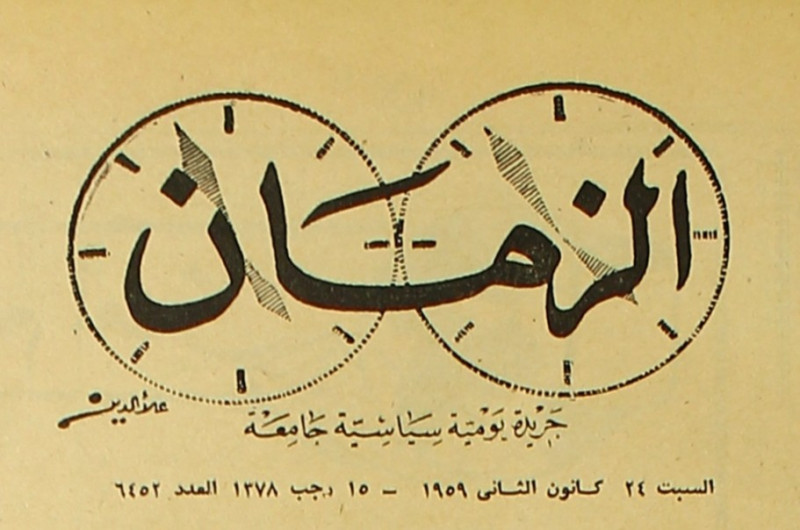 الزمان
علاء الدين
جريدة يومية سياسية جامعة
السبت ٢٤ كانون الثانى ١٩٥٩ - ١٥ رجب ١٣٧٨ العدد ٦٤٥٢